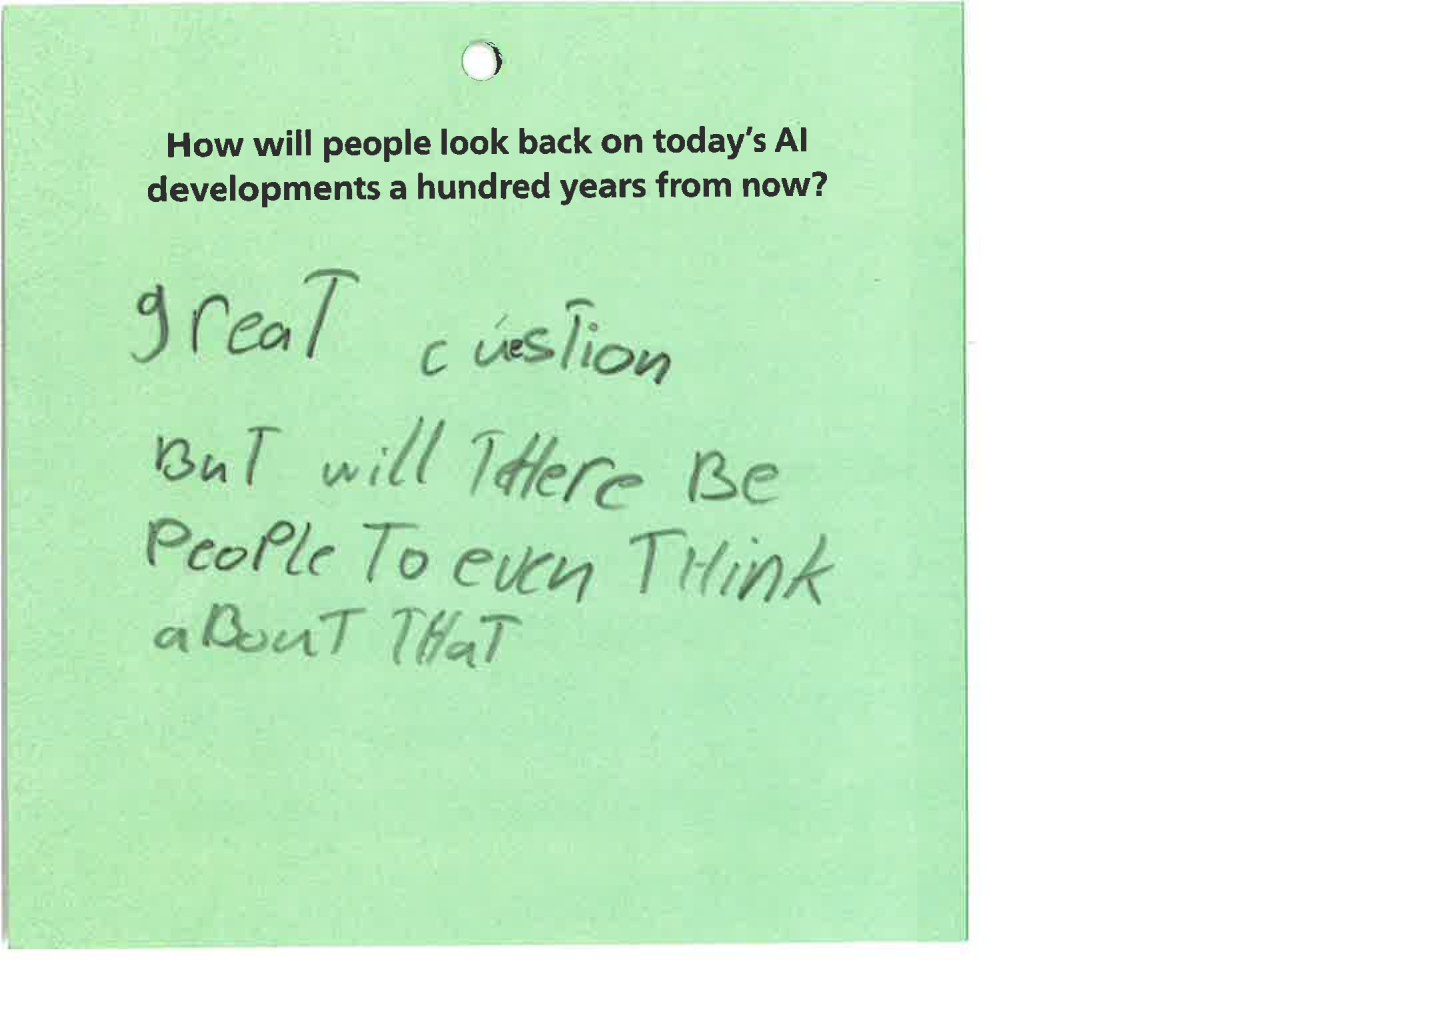 How will people look back on today's AI
developments a hundred years from now?
greaT cuesTion
BuT will THere Be
PeoPle To even THink
aBouT THaT